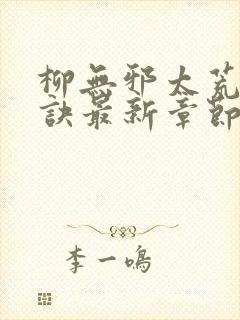 柳無邪太荒
訣最新章節
李一鳴